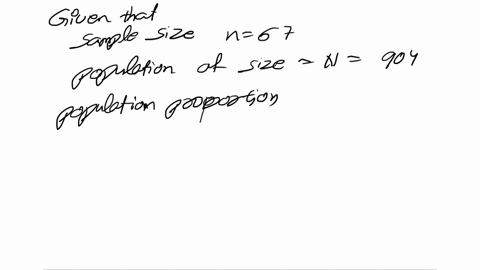 Given that
sample size n=67
population of size = N = 904
population proportion